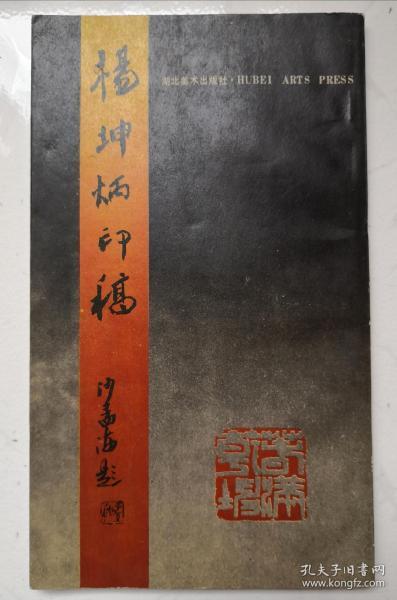 湖北美术出版社·HUBEI ARTS PRESS
楊坤炳印稿
沙孟海题
孔夫子旧书网
www.kongfz.com